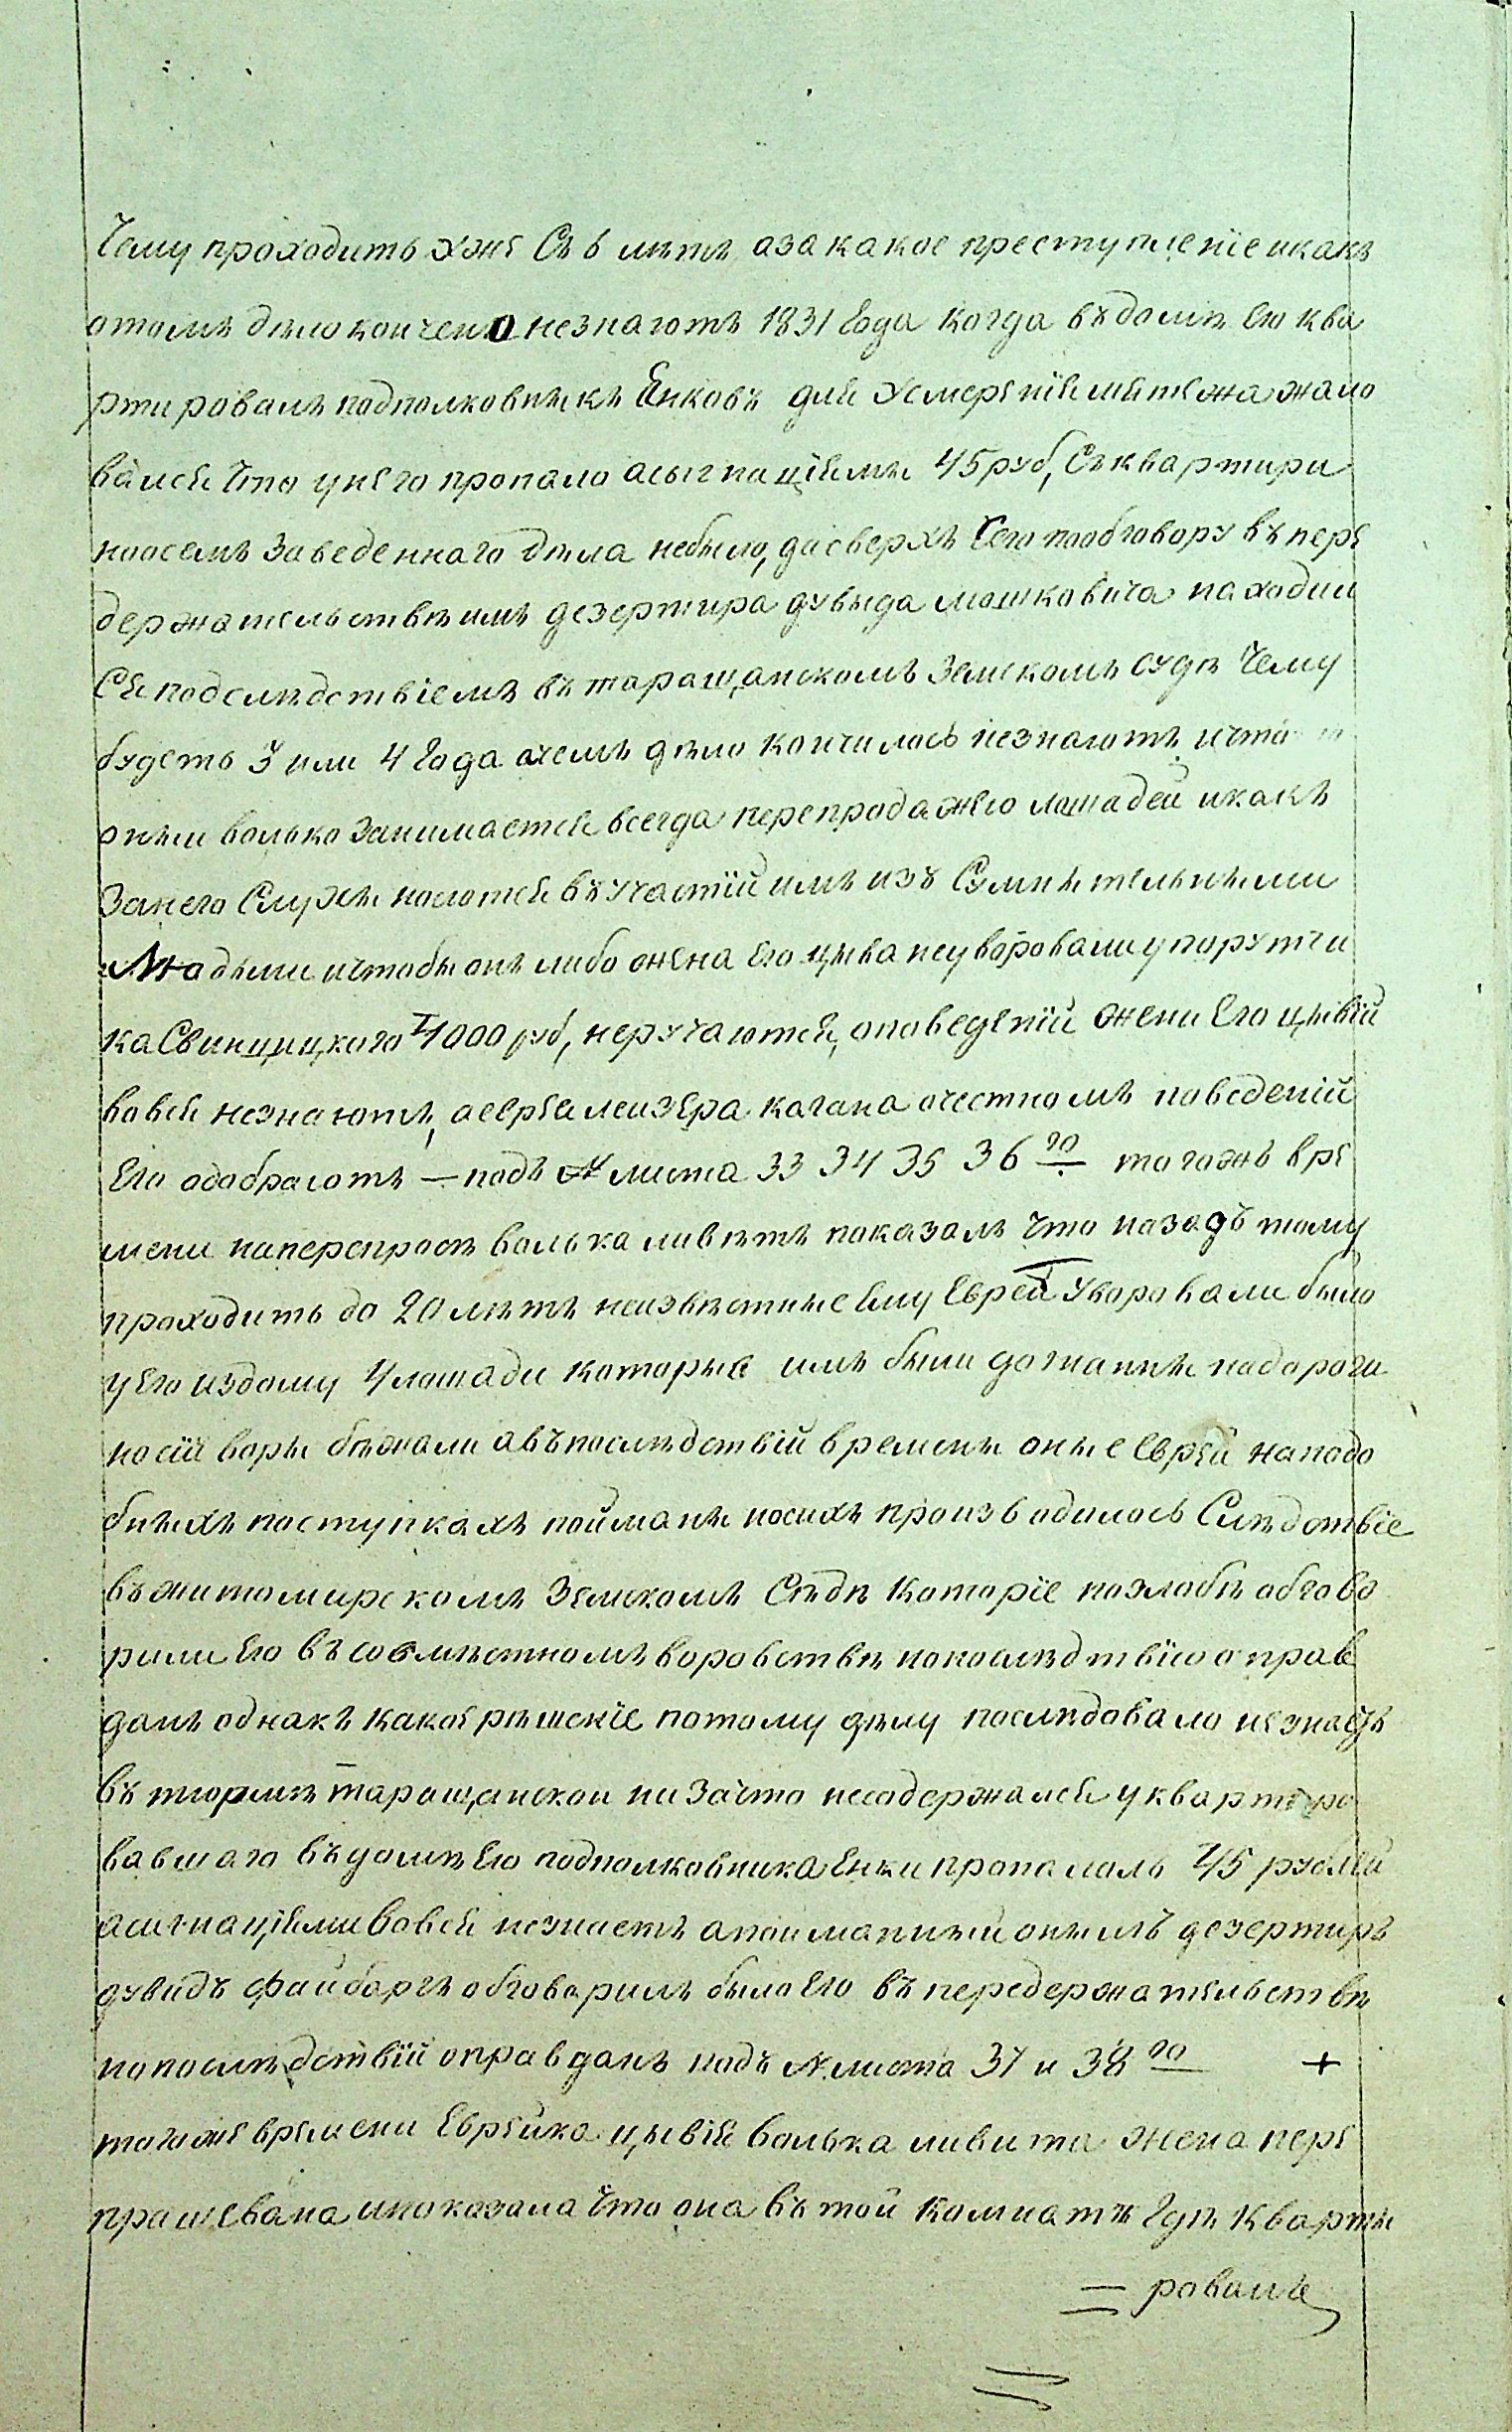 Чему проходитъ уже Съ 6 лѣтъ азакакое преступленіе икакъ
отомъ дѣло кончено незнаютъ 1831 Года когда въ домѣ Его ква
ртировалъ подполковныкъ Енковъ для Усмеренія мятежа жало
вался что унего пропало асыгнаціямы 45 руб, Съквартири
нооземъ Заведеннаго дѣла небыло, досверхъ Сего пообговору въ пере
держательствѣ имъ дезертира дувыда мошковича находил
Ся подслѣдствіемъ въ таращанскомъ Земскомъ судѣ Чему
будетъ 3 или 4 Года ачемъ дѣло кончилось незнаютъ ичто
оный волько Занимается всегда перепродажею лошадей икакъ
Занего Слухы носятся вучастій имъ изъ Сумнѣтельными
Людьми ичтобы онъ либо жена Его цыва неуворовали упоручи
ка Свинцицкого 4000 руб, неручаются, оповеденій жени Его цывій
вовся незнаютъ, аеврея леизера когана очестномъ поведеній
Его одобраютъ — подъ № листа 33 34 35 36 го тогожъ вре
мени наперепросѣ волька ливѣтъ показалъ что назадъ тому
проходитъ до 20 лѣтъ неизвѣстные Ему Евреи Уворовали было
уЕго издому 4 лошади которые имъ были догнанны надороги
носіи воры бѣжали авъпослѣдствій времены оные Еврей наподо
бныхъ поступкахъ пойманы носихъ производилось Слѣдствіе
въжитомирскомъ Земскомъ Судѣ Которіе позлобѣ обгово
рили Его въ совмѣстномъ воровствѣ нопослѣдствію оправ
данъ однакъ какое рѣшеніе потому дѣлу послѣдовало незнаетъ
въ тюрмѣ таращанской ни Зачто несодержался уквартиро
вавшаго въдомѣ Его подполковника Енки пропалаль 45 рублей
асигнаціями вовся незнаетъ апоиманный онымъ дезертиръ
дувидъ файборгъ обговорилъ было Его въ передержательствѣ
нопослѣдствій оправданъ подъ № листа 37 и 38 го +
тогоже времени Еврейка цывія волька ливита жена пере
прашевана ипоказала что она въ той комнатѣ Гдѣ Кварты
— ровалъ